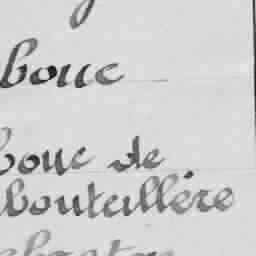 bouc
bouc de
bouteillère